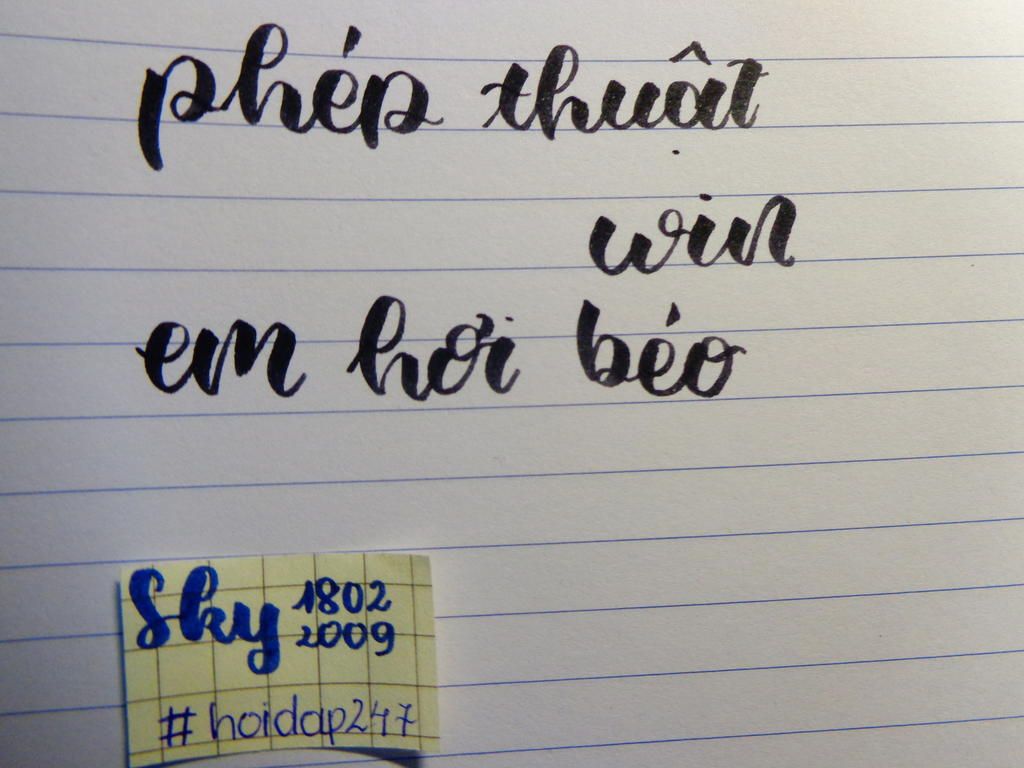 phép thuật
win
em hơi béo
Sky 1802
2009
#hoidap247